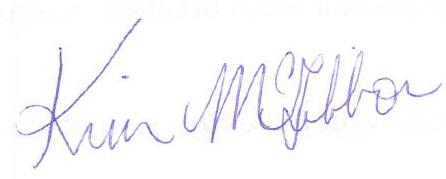 Kim McGibbon